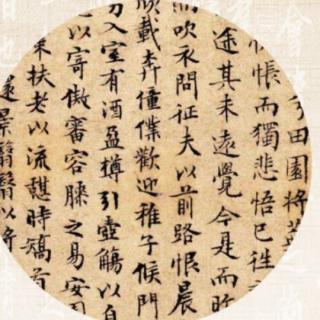 兮田園將蕪
惆悵而獨悲悟已往
途其未遠覺今是而昨
而吹衣問征夫以前路恨晨
欣載奔僮僕歡迎稚子候門
入室有酒盈樽引壺觴以自
以寄傲審容膝之易安
策扶老以流憩時矯首
景翳翳以將